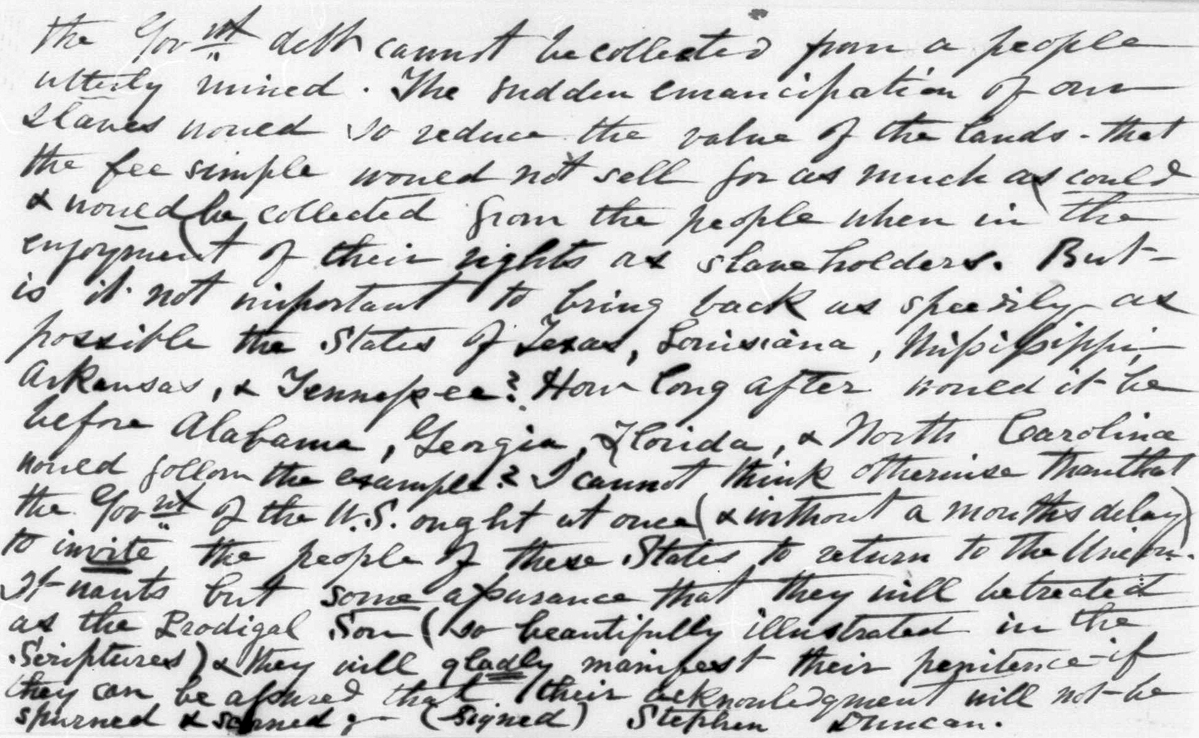 the Govnt debt cannot be collected from a people
utterly ruined. The sudden emancipation of our
slaves would so reduce the value of the lands - that
the fee simple would not sell for as much as could
& would be collected from the people when in the
enjoyment of their rights as slaveholders. But -
is it not important to bring back as speedily as
possible the States of Texas, Louisiana, Mississippi,
Arkansas, & Tennessee? How long after would it be
before Alabama, Georgia, Florida, & North Carolina
would follow the example? I cannot think otherwise than that
the Govnt of the U.S. ought at once (& without a months delay)
to invite the people of these States to return to the Union.
It wants but some assurance that they will be treated
as the Prodigal Son (so beautifully illustrated in the
Scriptures) & they will gladly manifest their penitence - if
they can be assured that their acknowledgment will not be
spurned & scorned - (signed) Stephen Duncan.